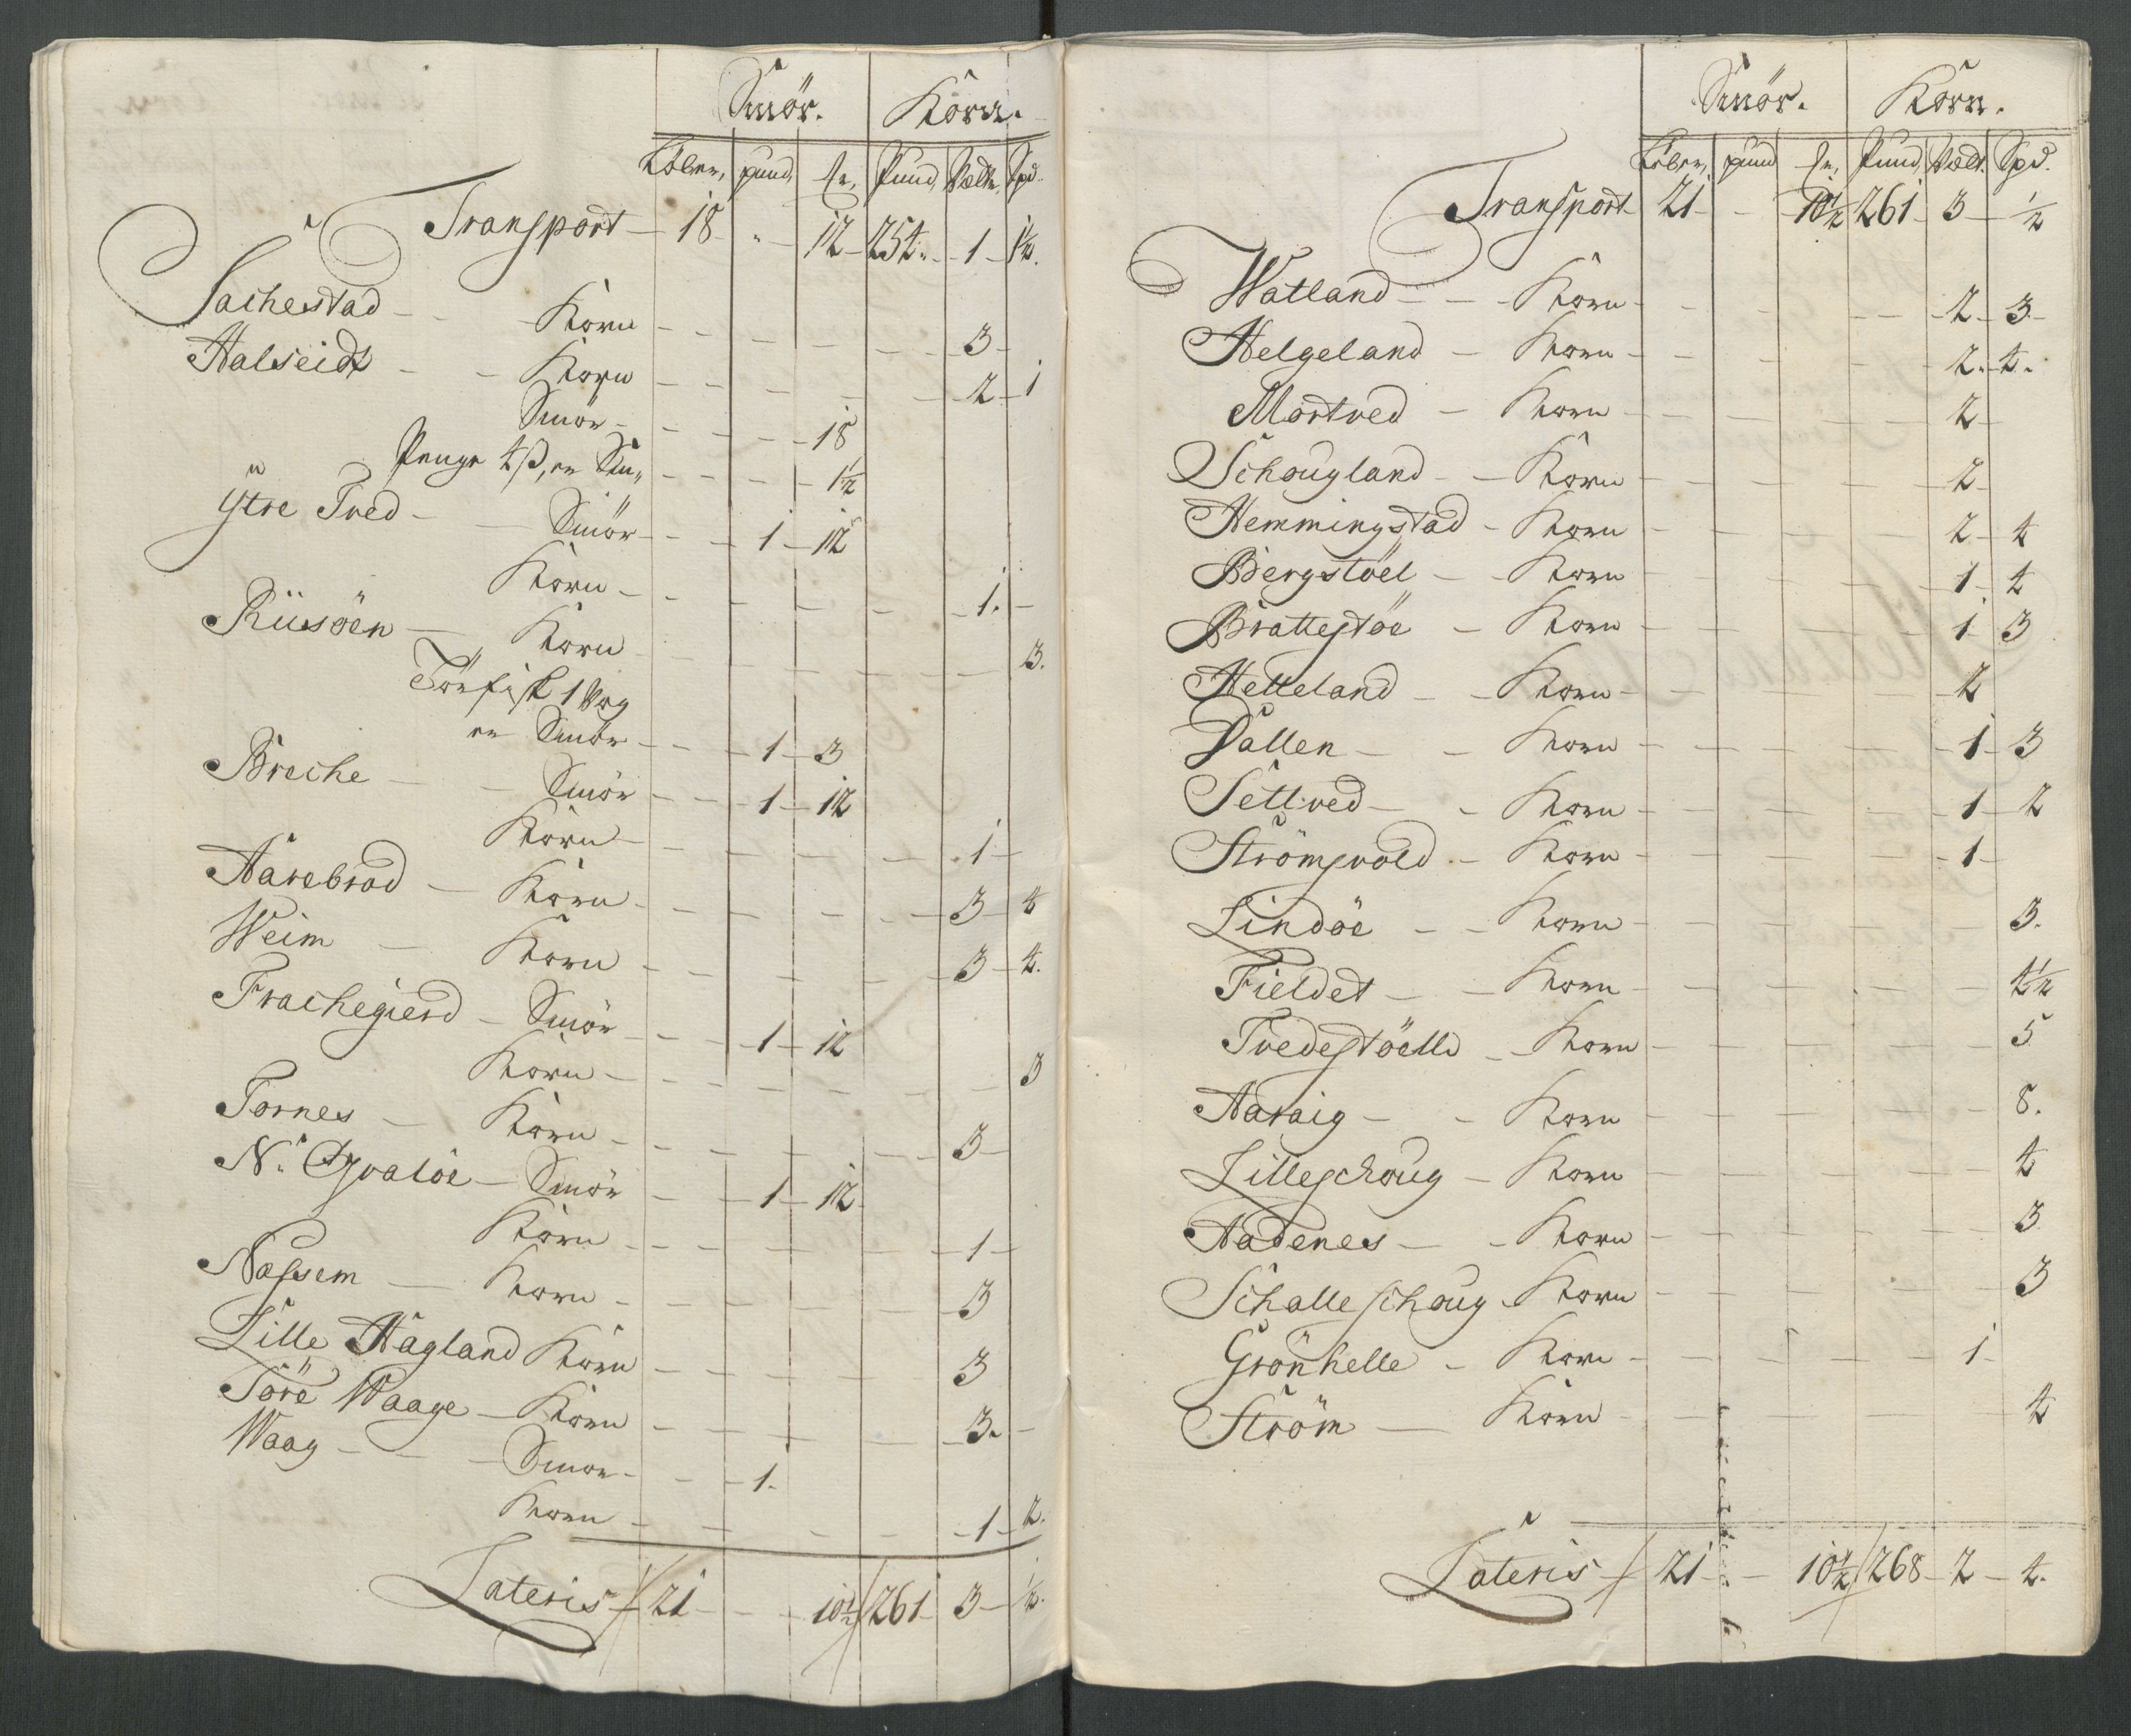 Smör. Korn.
Löber, pund, ℔, Pund, Vætt, Spd.
Transport 18 " 12 254 1 1½.
Sachestad Korn 3
Halseidt Korn 2 1
Smör 18
Penge 4 ß, er Sm, 1½
Ytre Tved Smör 1 12
Korn 1.
Riisöen Korn 3.
Törfisk 1 Vog
er Smör 1 3
Breche Smör 1 12
Korn 1
Aarebrod Korn 3 4
Weim Korn 3 4.
Frachegierd Smör 1 12
Korn 3
Tornes Korn 3
N. Qvalöe Smör 1 12
Korn 1
Nassem Korn 3
Lille Hagland Korn 3
Töre Waage Korn 3.
Waag Smör 1.
Korn 1 2.
Lateris 21 10½ 261 3 ½.
Smör. Korn.
Löber, pund ℔, Pund, Vætt. Spd.
Transport 21 10½ 261 3 ½
Watland Korn 2 3
Helgeland Korn 2. 4.
Mortved Korn 2
Schougland Korn 2
Hemmingstad Korn 2 4
Bergstöel Korn 1 4
Brattestöe Korn 1 3
Helleland Korn 2
Dallen Korn 1 3
Settved Korn 1 2
Strömsvold Korn 1
Lindöe Korn 3.
Fieldet Korn 4½
Tvedestöelld Korn 5
Aaraig Korn 8.
Lilleschoug Korn 4
Aadenes Korn 3
Schalleschoug Korn 3
Grönhelle Korn 1
Ström Korn 4
Lateris 21 10½ 268 2 4.